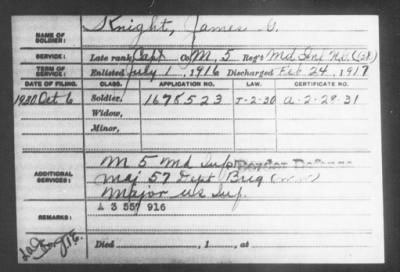 NAME OF SOLDIER: Knight, James G.
SERVICE: Late rank Capt Co M, 5 Reg't Md Inf N.G.
TERM OF SERVICE: Enlisted July 1, 1916 Discharged Feb 24, 1917
DATE OF FILING. CLASS. APPLICATION NO. LAW. CERTIFICATE NO.
1930 Oct 6 Soldier, 1678523 J-2-30 A-2-29-31
Widow,
Minor,
ADDITIONAL SERVICES: M 5 Md Inf
Maj 57 Dept Brig (W.W.)
Major US Inf.
A 3 557 916
REMARKS:
Died , 1 , at